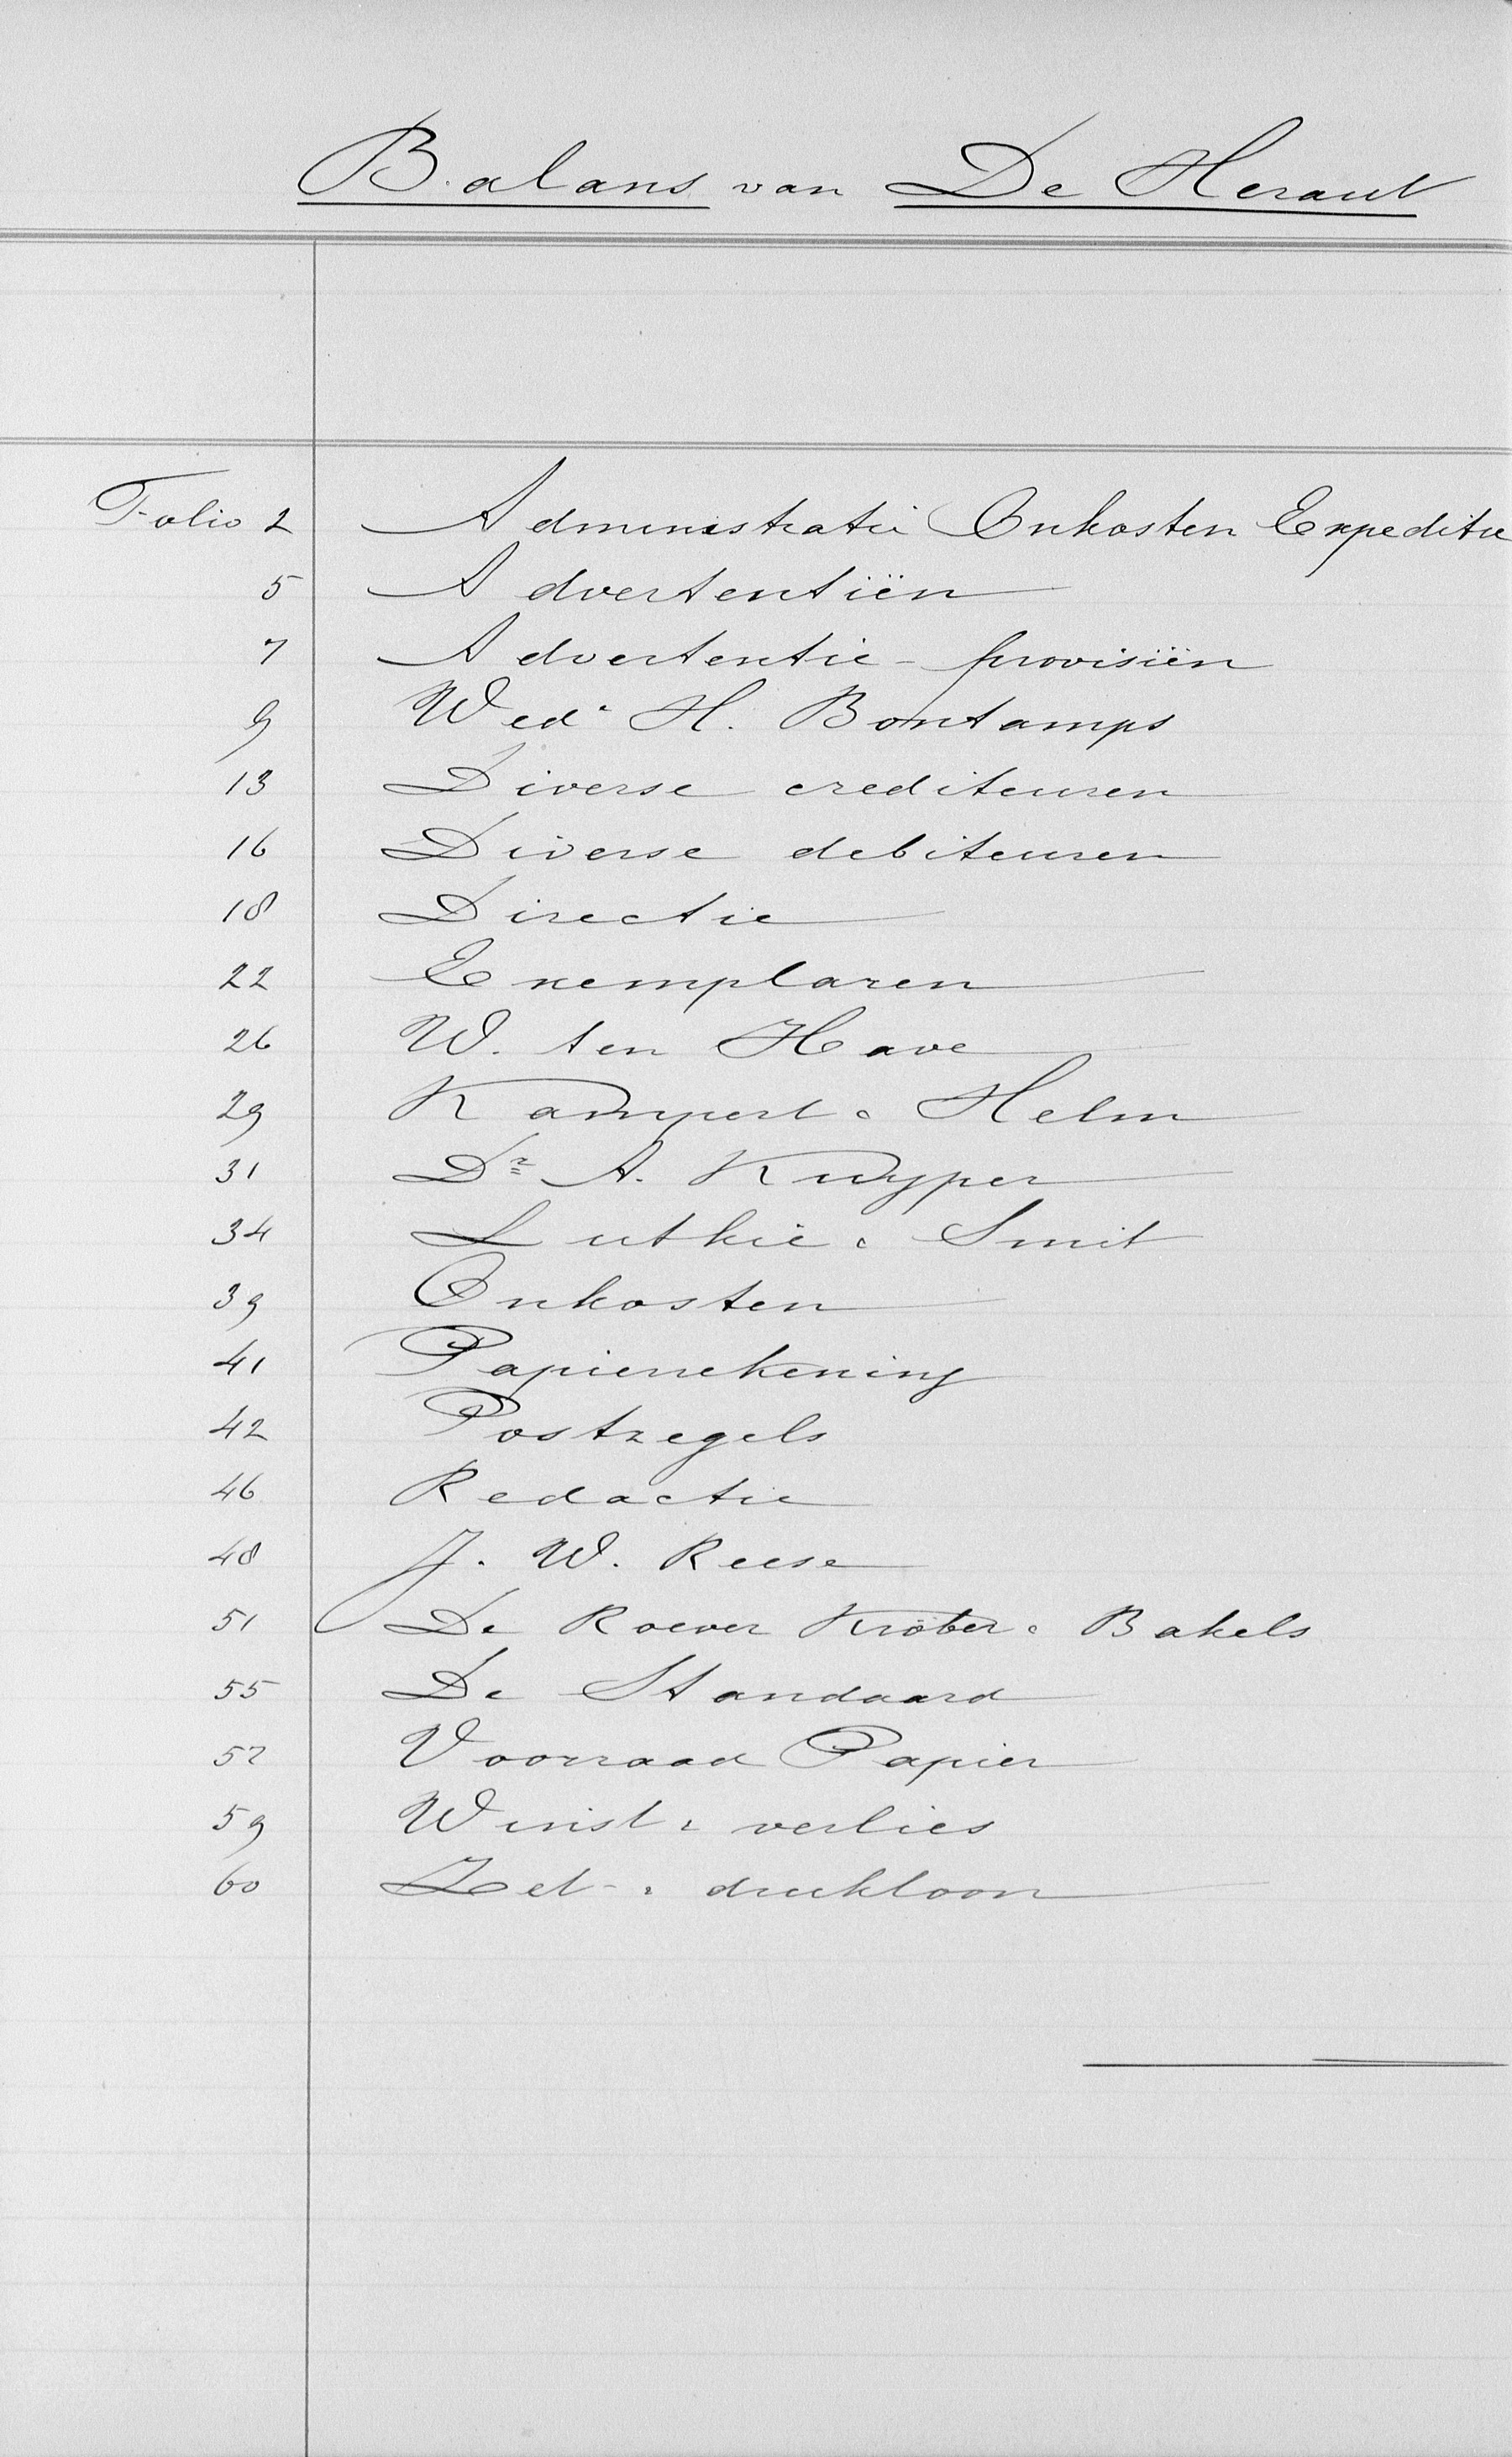 Balans van De Heraut
Folio 2 Administratie Onkosten Expeditie
5 Advertentiën
7 Advertentie-provisiën
9 Wed. H. Bontamps
13 Diverse crediteuren
16 Diverse debiteuren
18 Directie
22 Exemplaren
26 W. ten Have
29 Kampert & Helm
31 Dr A. Kuyper
34 Lutkie & Smit
39 Onkosten
41 Papierrekening
42 Postzegels
46 Redactie
48 J. W. Reese
51 De Roever Kröber & Bakels
55 De Standaard
57 Voorraad Papier
59 Winst & verlies
60 Zet- & drukloon